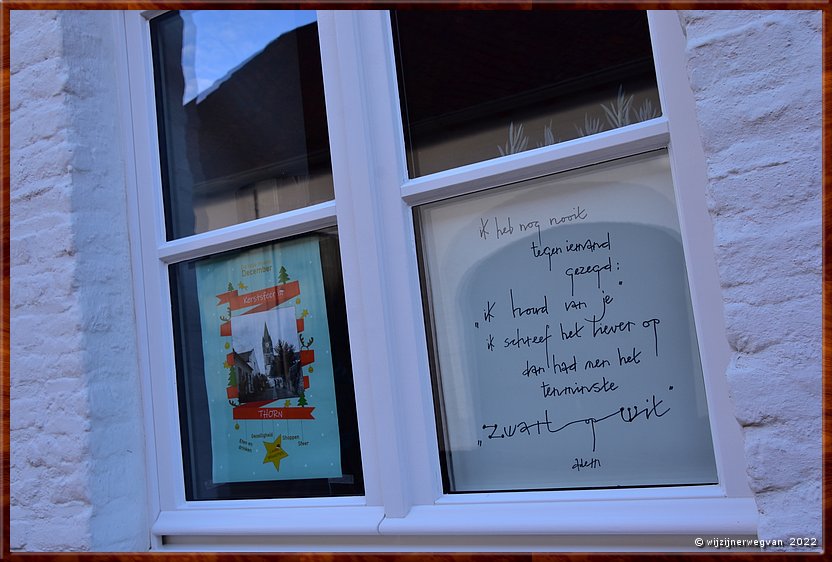 December
Kerststad in
THORN
Gezelligheid
Shoppen
Eten en
drinken
Sfeer
ik heb nog nooit
tegen iemand
gezegd:
"ik houd van je"
ik schreef het liever op
dan had men het
tenminste
"zwart op wit"
© wijzijnerwegvan 2022